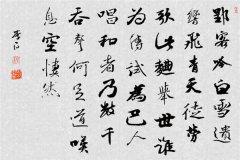 郢客吟白雪遺
響飛青天徒勞
歌此曲舉世誰
為傳試為巴人
唱和者乃數千
吞聲何足道嘆
息空悽然